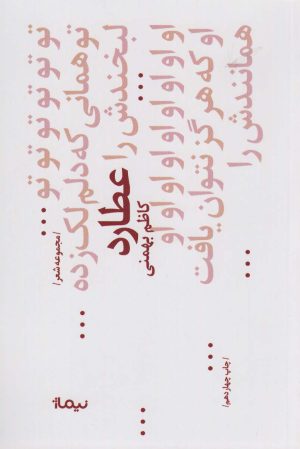 تو تو تو تو تو تو ...
تو همانی که دلم لک زده ...
لبخندش را ...
/مجموعه شعر/
عطارد
کاظم بهمنی
... او او او او او او او او
او که هرگز نتوان یافت ...
همانندش را ...
/چاپ چهاردهم/
نیماژ